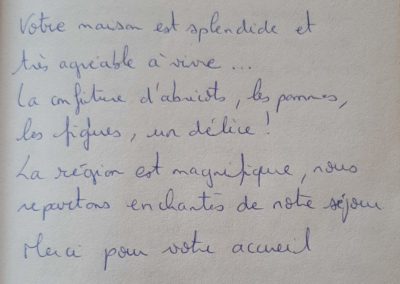 Votre maison est splendide et
très agréable à vivre ...
La confiture d'abricots, les pommes,
les figues, un délice !
La région est magnifique, nous
repartons enchantés de notre séjour
Merci pour votre accueil